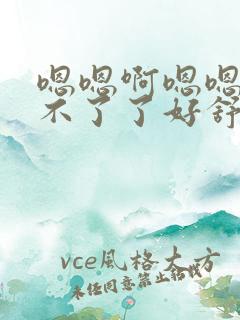 嗯嗯啊嗯嗯
不了了好舒
vce風格大方
未经同意禁止转载